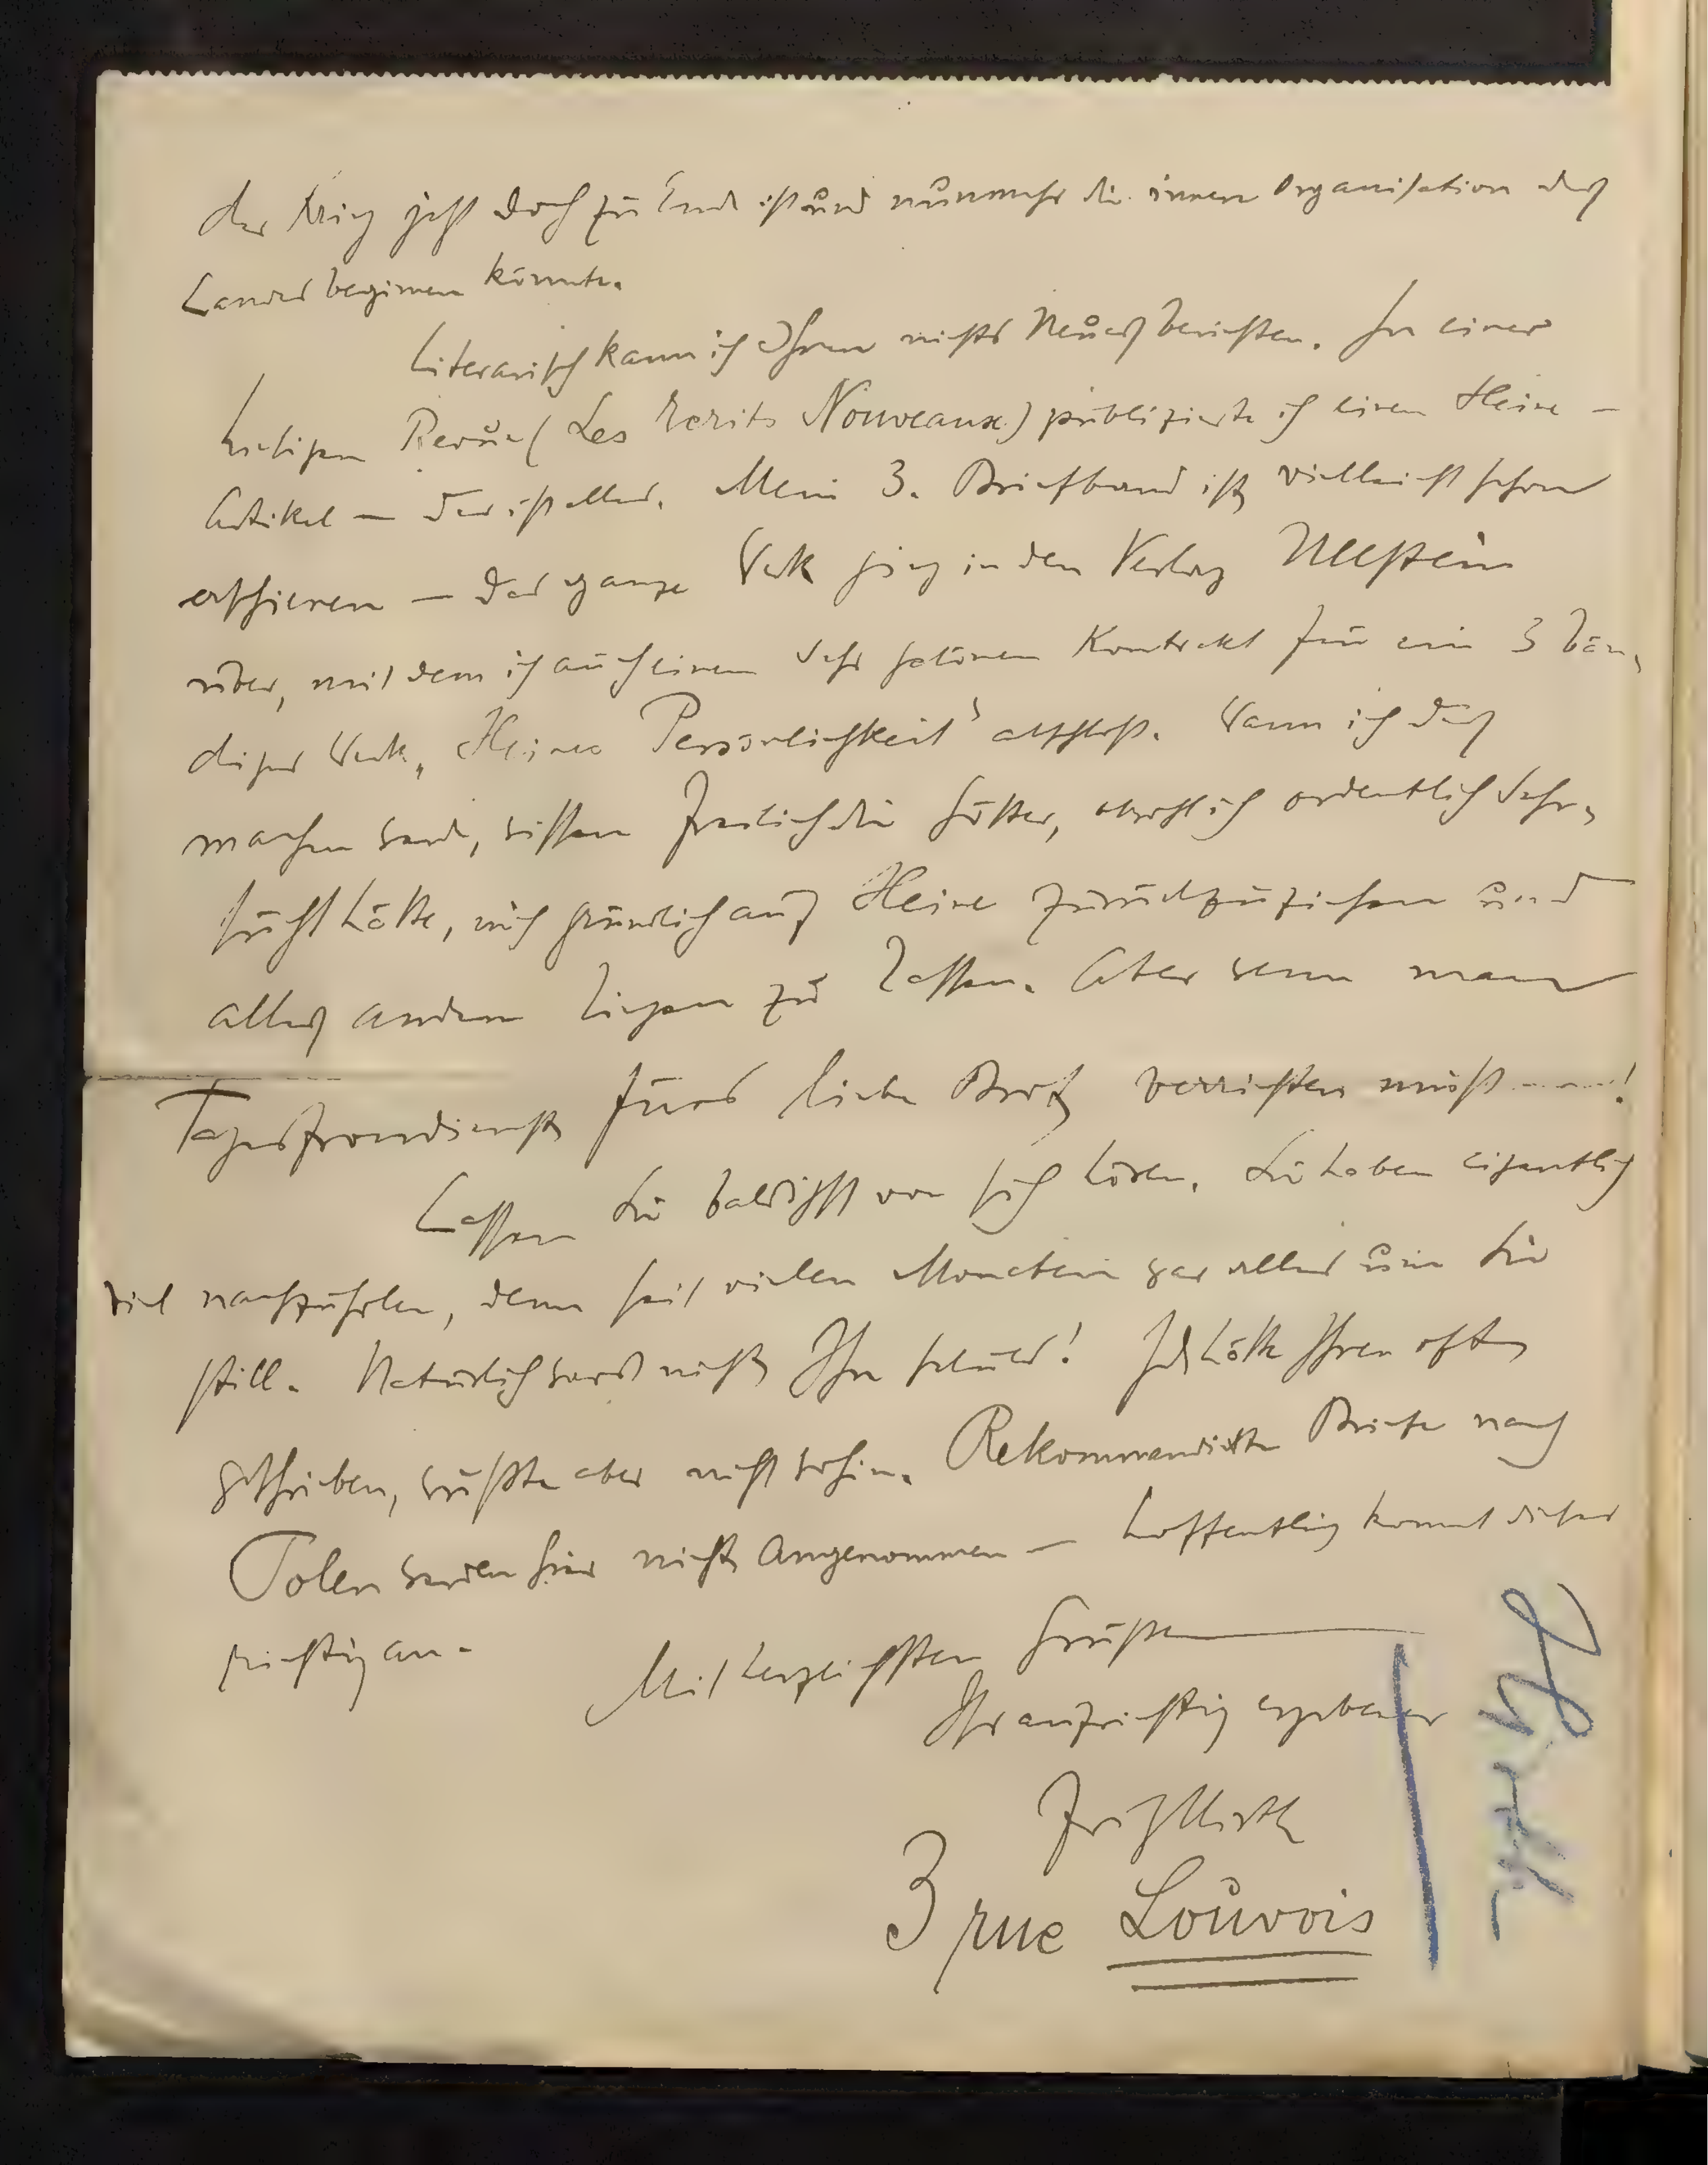 der Krieg jetzt doch zu Ende ist und nunmehr die innere Organisation des
Landes beginnen könnte.
Literarisch kann ich Ihnen nichts Neues berichten. In einer
hiesigen Revue (Les Ecrits Nouveaux) publizierte ich einen Heine-
Artikel — das ist alles. Mein 3. Briefband ist vielleicht schon
erschienen — das ganze Werk ging in den Verlag Ullstein
über, mit dem ich auch einen sehr schönen Kontrakt für ein 3 bän-
diges Werk „Heines Persönlichkeit" abschloß. Wann ich das
machen werde, wissen freilich die Götter, obwohl ich ordentlich Sehn-
sucht hätte, mich gründlich auf Heine zurückzuziehen und
alles andere liegen zu lassen. Aber wenn man
Tagesfrondienst fürs liebe Brot verrichten muß ......!
Lassen Sie baldigst von sich hören. Sie haben eigentlich
viel nachzuholen, denn seit vielen Monaten war alles um Sie
still. Natürlich wars nicht Ihre Schuld! Ich hätte Ihnen oft
geschrieben, wußte aber nicht wohin. Rekommandierte Briefe nach
Polen werden hier nicht angenommen — hoffentlich kommt dieser
richtig an.
Mit herzlichsten Grüßen
Ihr aufrichtig ergebener
Fritz Hirth
3 rue Louvois
Hirth